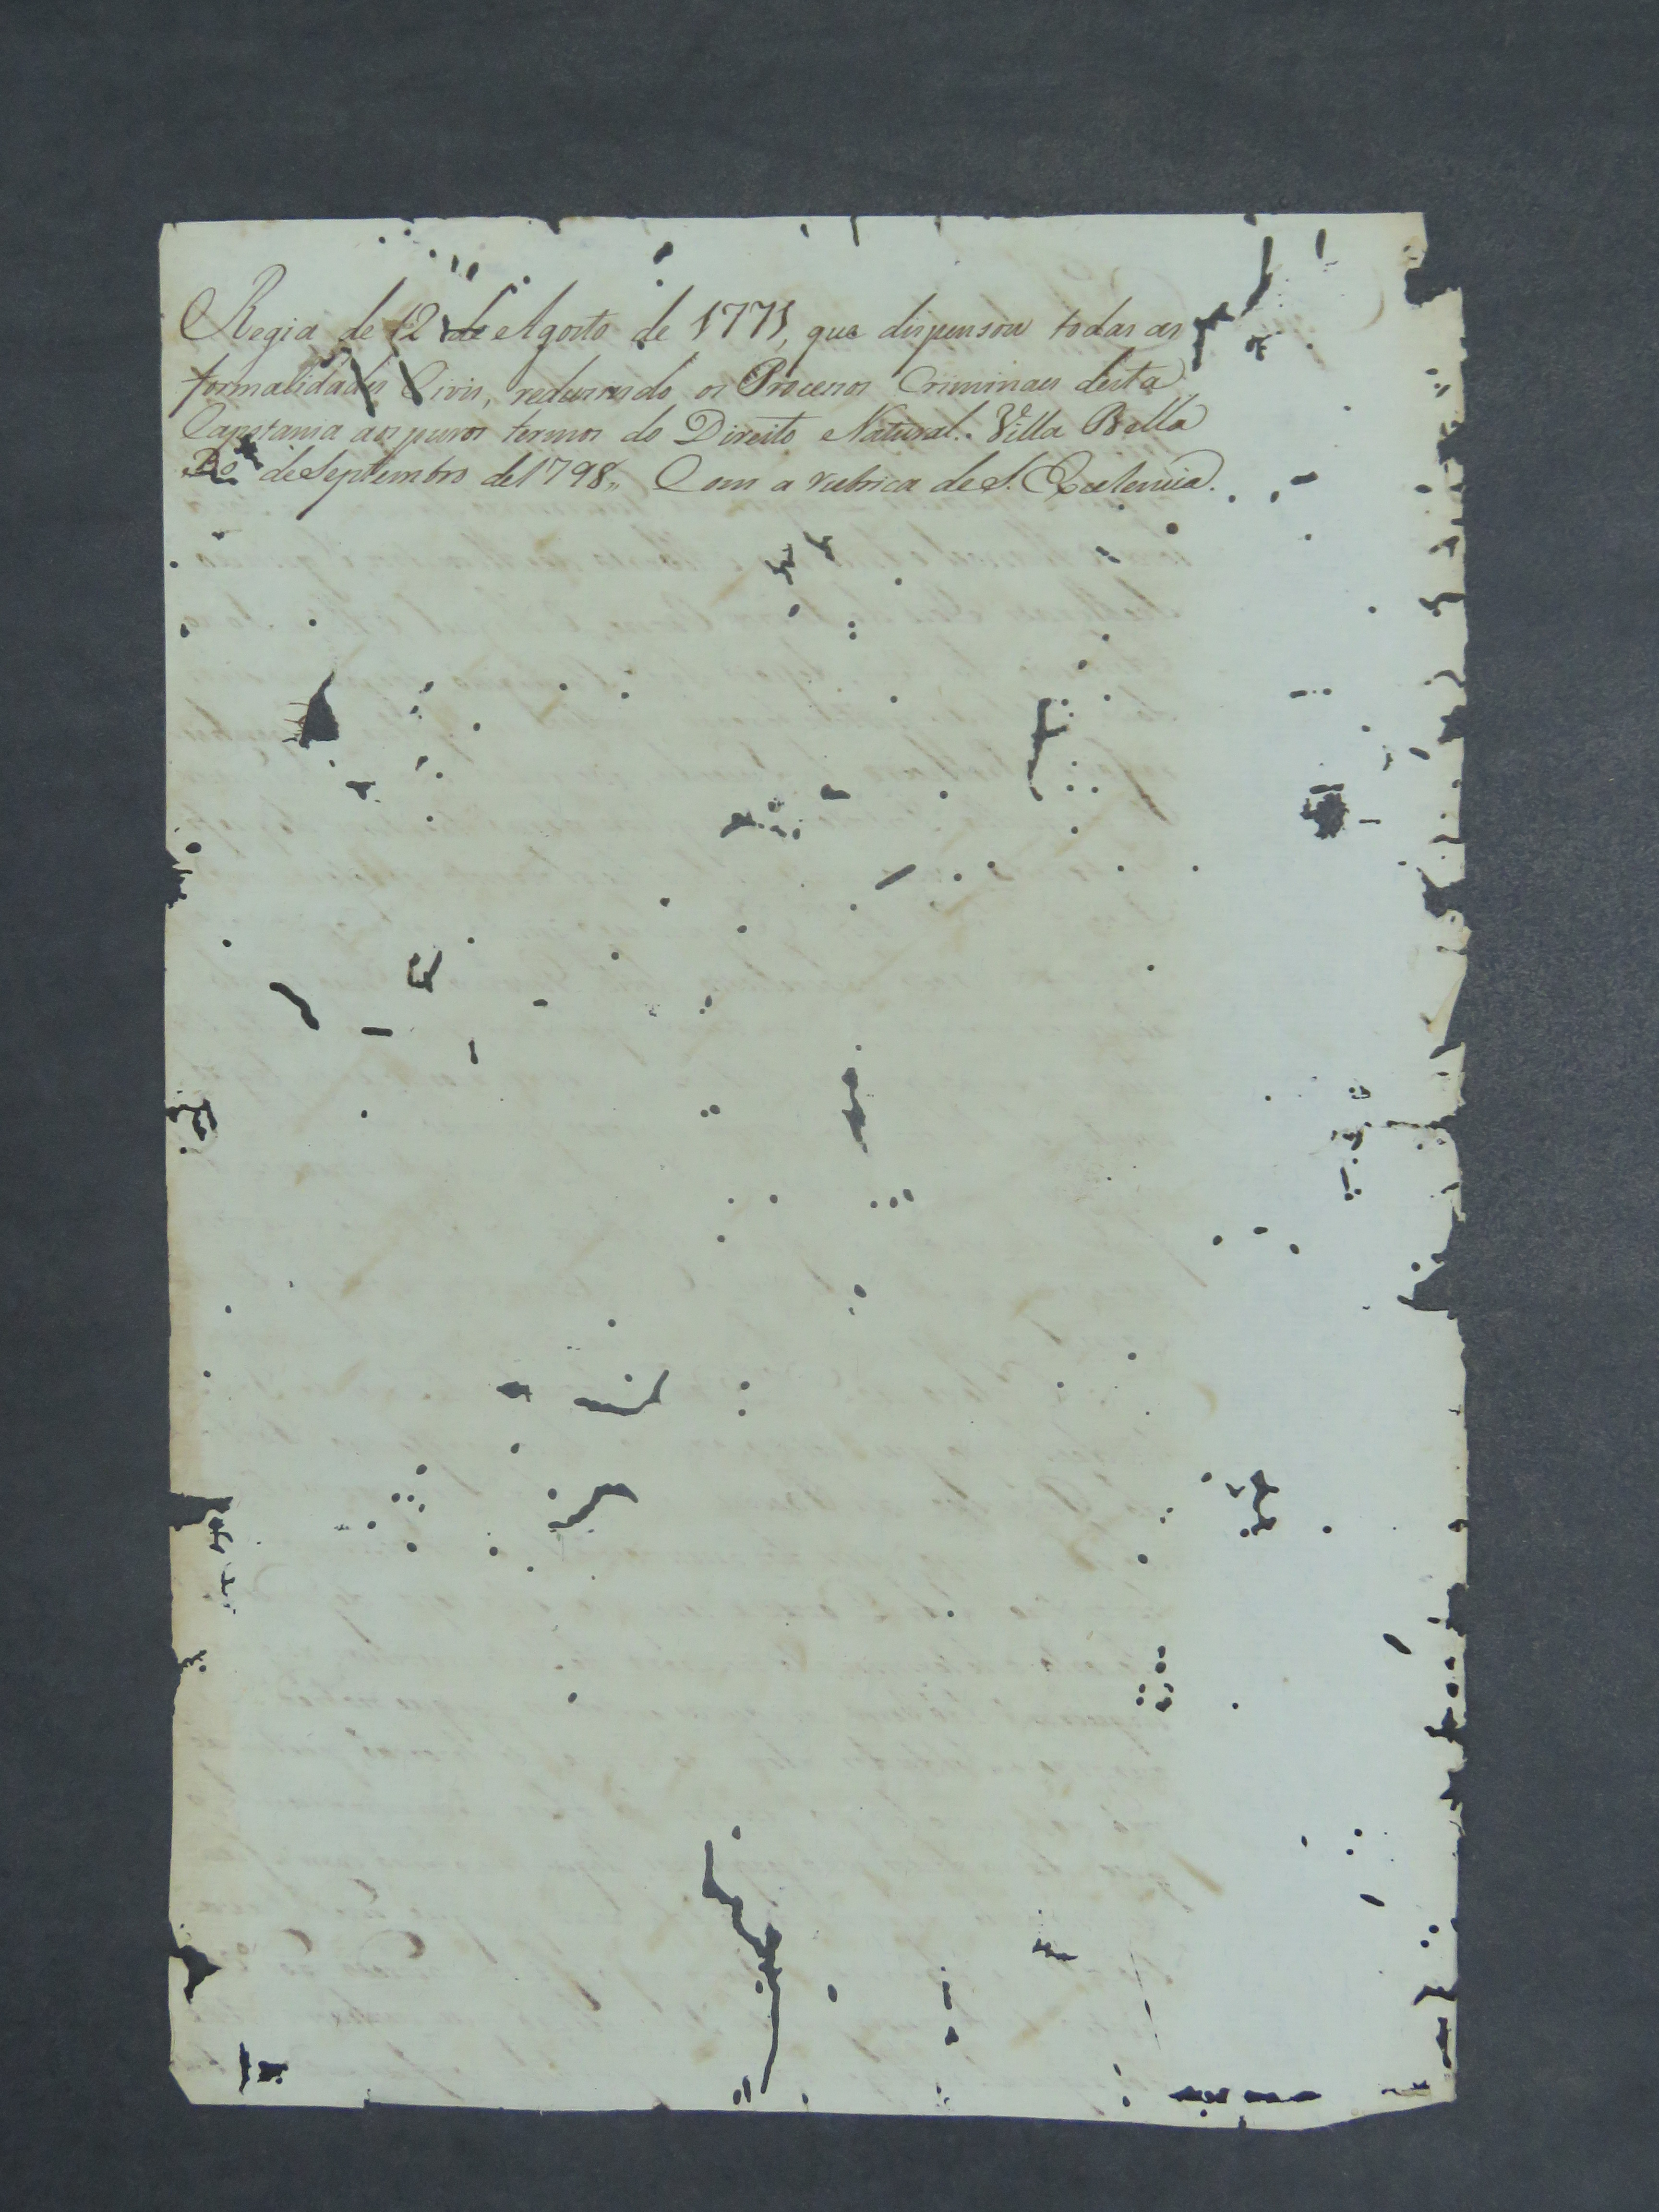 Regia de 12 de Agosto de 1771, que dispensou todas as
formalidades Civis, redusindo os Processos Criminaes desta
Capitania aos puros termos do Direito Natural. Villa Bella
30 de Septembro de 1798,, Com a rubrica de S. Excelencia.